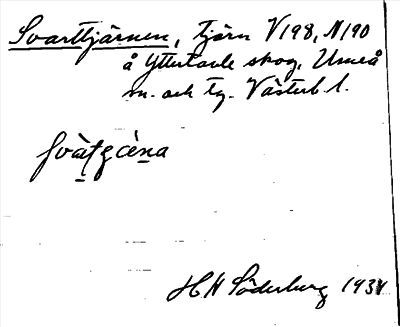 Svarttjärnen, tjärn V198, N190
å Yttertavle skog, Umeå
sn. och tg. Västerb. l.
H H Söderburg 1934